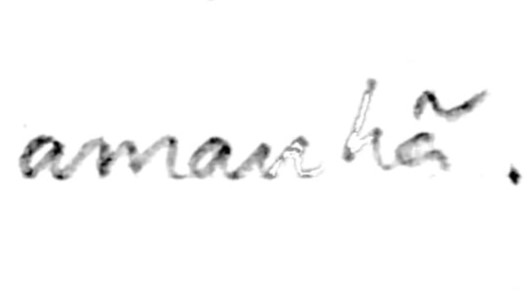 amanhã.